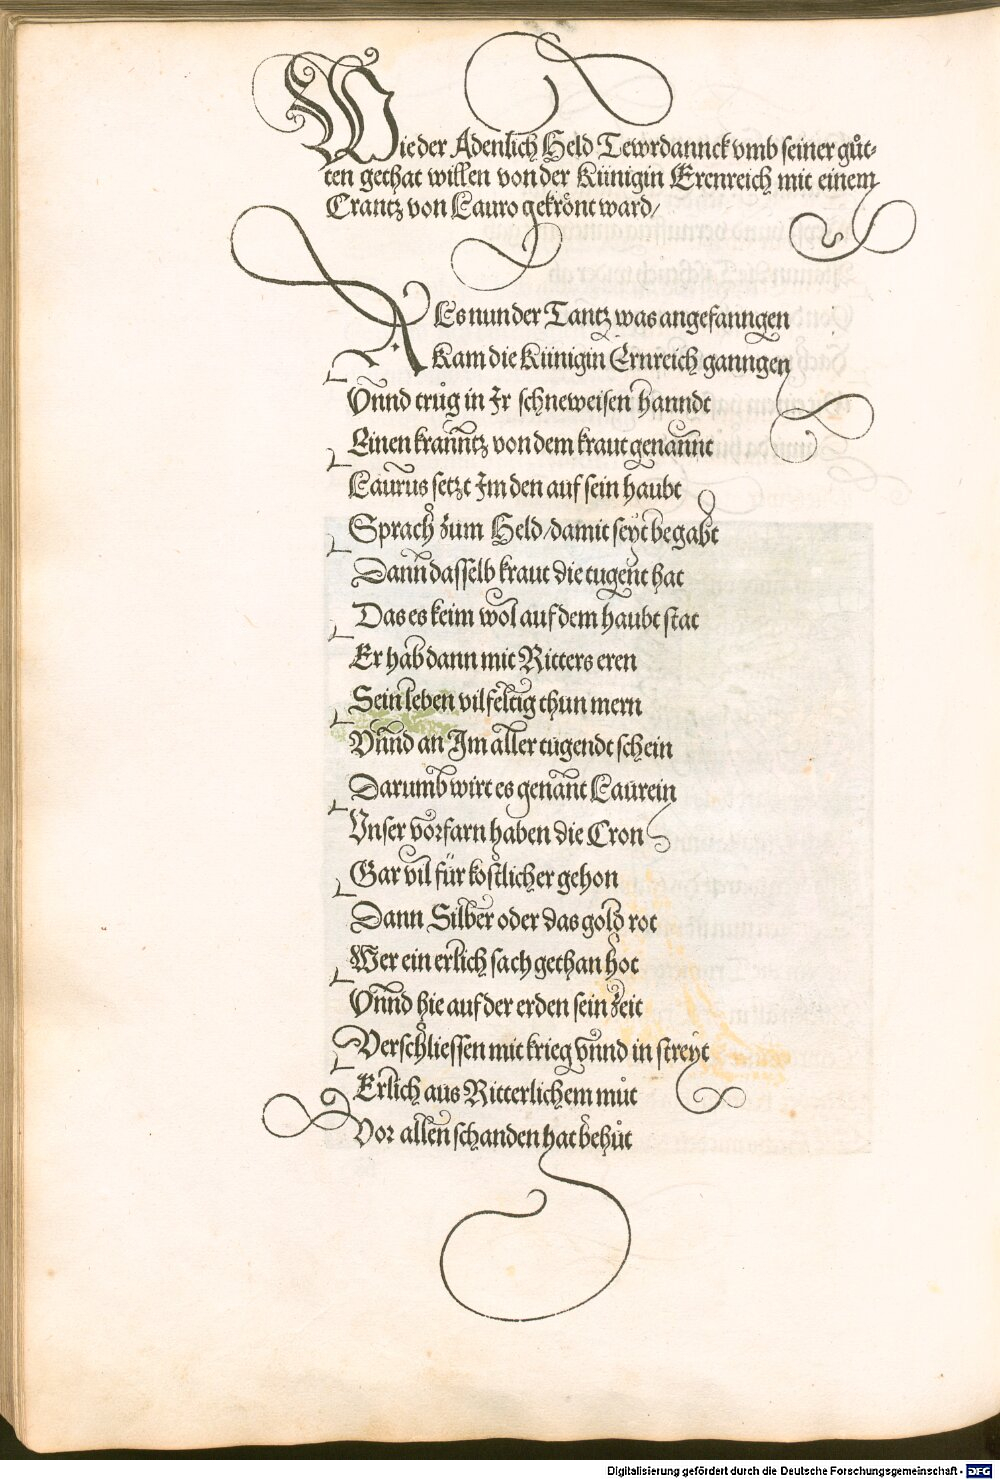 Wie der Adenlich Held Tewrdannck vmb seiner gůt-
ten gethat willen von der Künigin Erenreich mit einem
Crantz von Lauro gekrönt ward/
Als nun der Tantz was angefanngen
Kam die Künigin Ernreich ganngen
Vnnd trůg in Jr schneweisen hanndt
Einen kranntz von dem kraut genannt
Laurus setzt Jm den auf sein haubt
Sprach zum Held/damit seyt begabt
Dann dasselb kraut die tugent hat
Das es keim wol auf dem haubt stat
Er hab dann mit Ritters eren
Sein leben vilfeltig thun mern
Vnnd an Jm aller tugendt schein
Darumb wirt es genant Laurein
Vnser vorfarn haben die Cron
Gar vil für kostlicher gehon
Dann Silber oder das gold rot
Wer ein erlich sach gethan hot
Vnnd hie auf der erden sein zeit
Verschliessen mit krieg vnnd in streyt
Erlich aus Ritterlichem můt
Vor allen schanden hat behůt
Digitalisierung gefördert durch die Deutsche Forschungsgemeinschaft - DFG